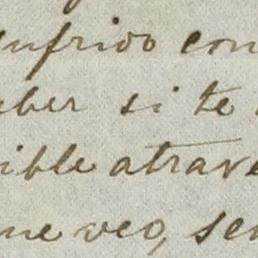 sufrido con
aber si te
ible atrave
me veo, sen